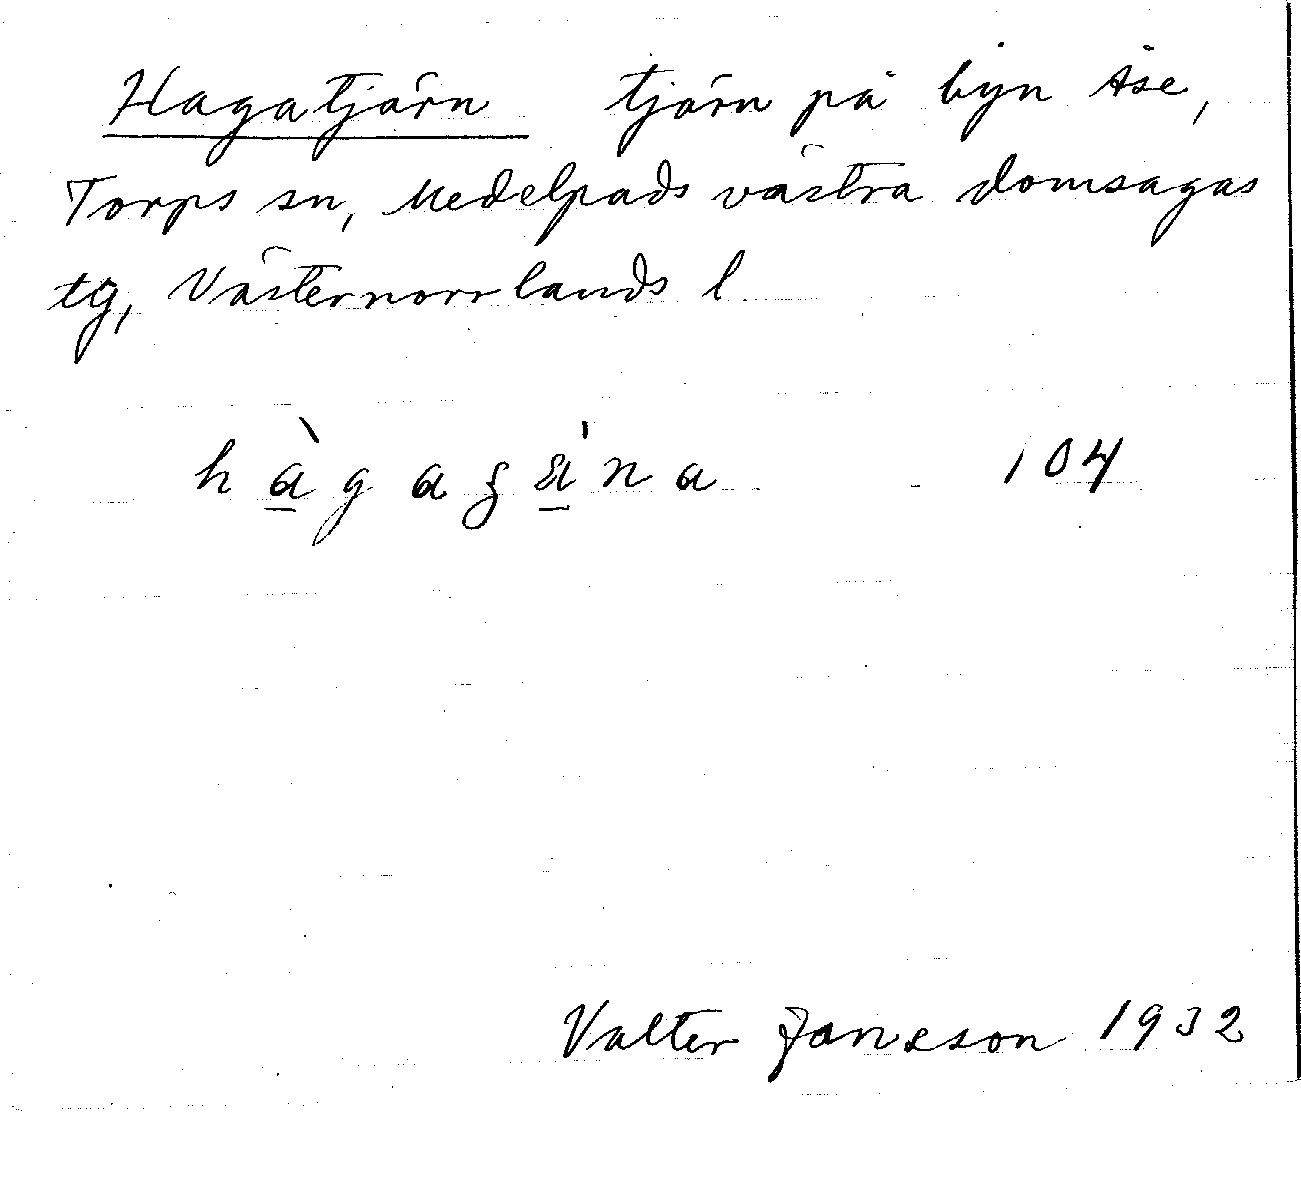 Hagatjärn tjärn på byn Åse,
Torps sn, Medelpads västra domsagas
tg, Västernorrlands l
104
Valter Jansson 1932